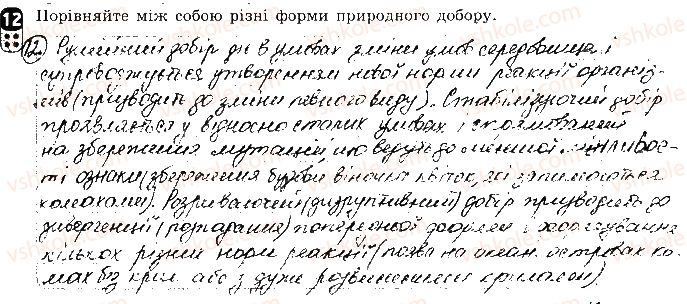 12 Порівняйте між собою різні форми природного добору.
12. Рушійний добір діє в умовах зміни умов середовища і
супроводжується утворенням нової норми реакції організ-
мів (призводить до зміни певного виду). Стабілізуючий добір
проявляється у відносно сталих умовах і спрямований
на збереження мутацій, що ведуть до меншої мінливос-
ті ознаки (збереження будови віночка квіток, які запилюються
комахами). Розриваючий (дизруптивний) добір призводить до
дивергенції (розпадання) попередньої форми і
кількох різних норм реакції (поява на океан. островах ко-
мах без крил або з дуже розвиненими крилами).